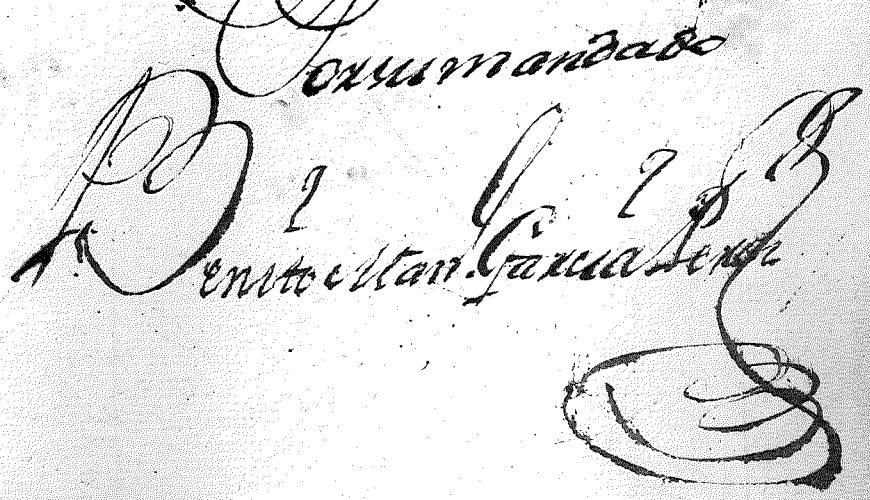 Porsumandado
Benito Man. Garcia